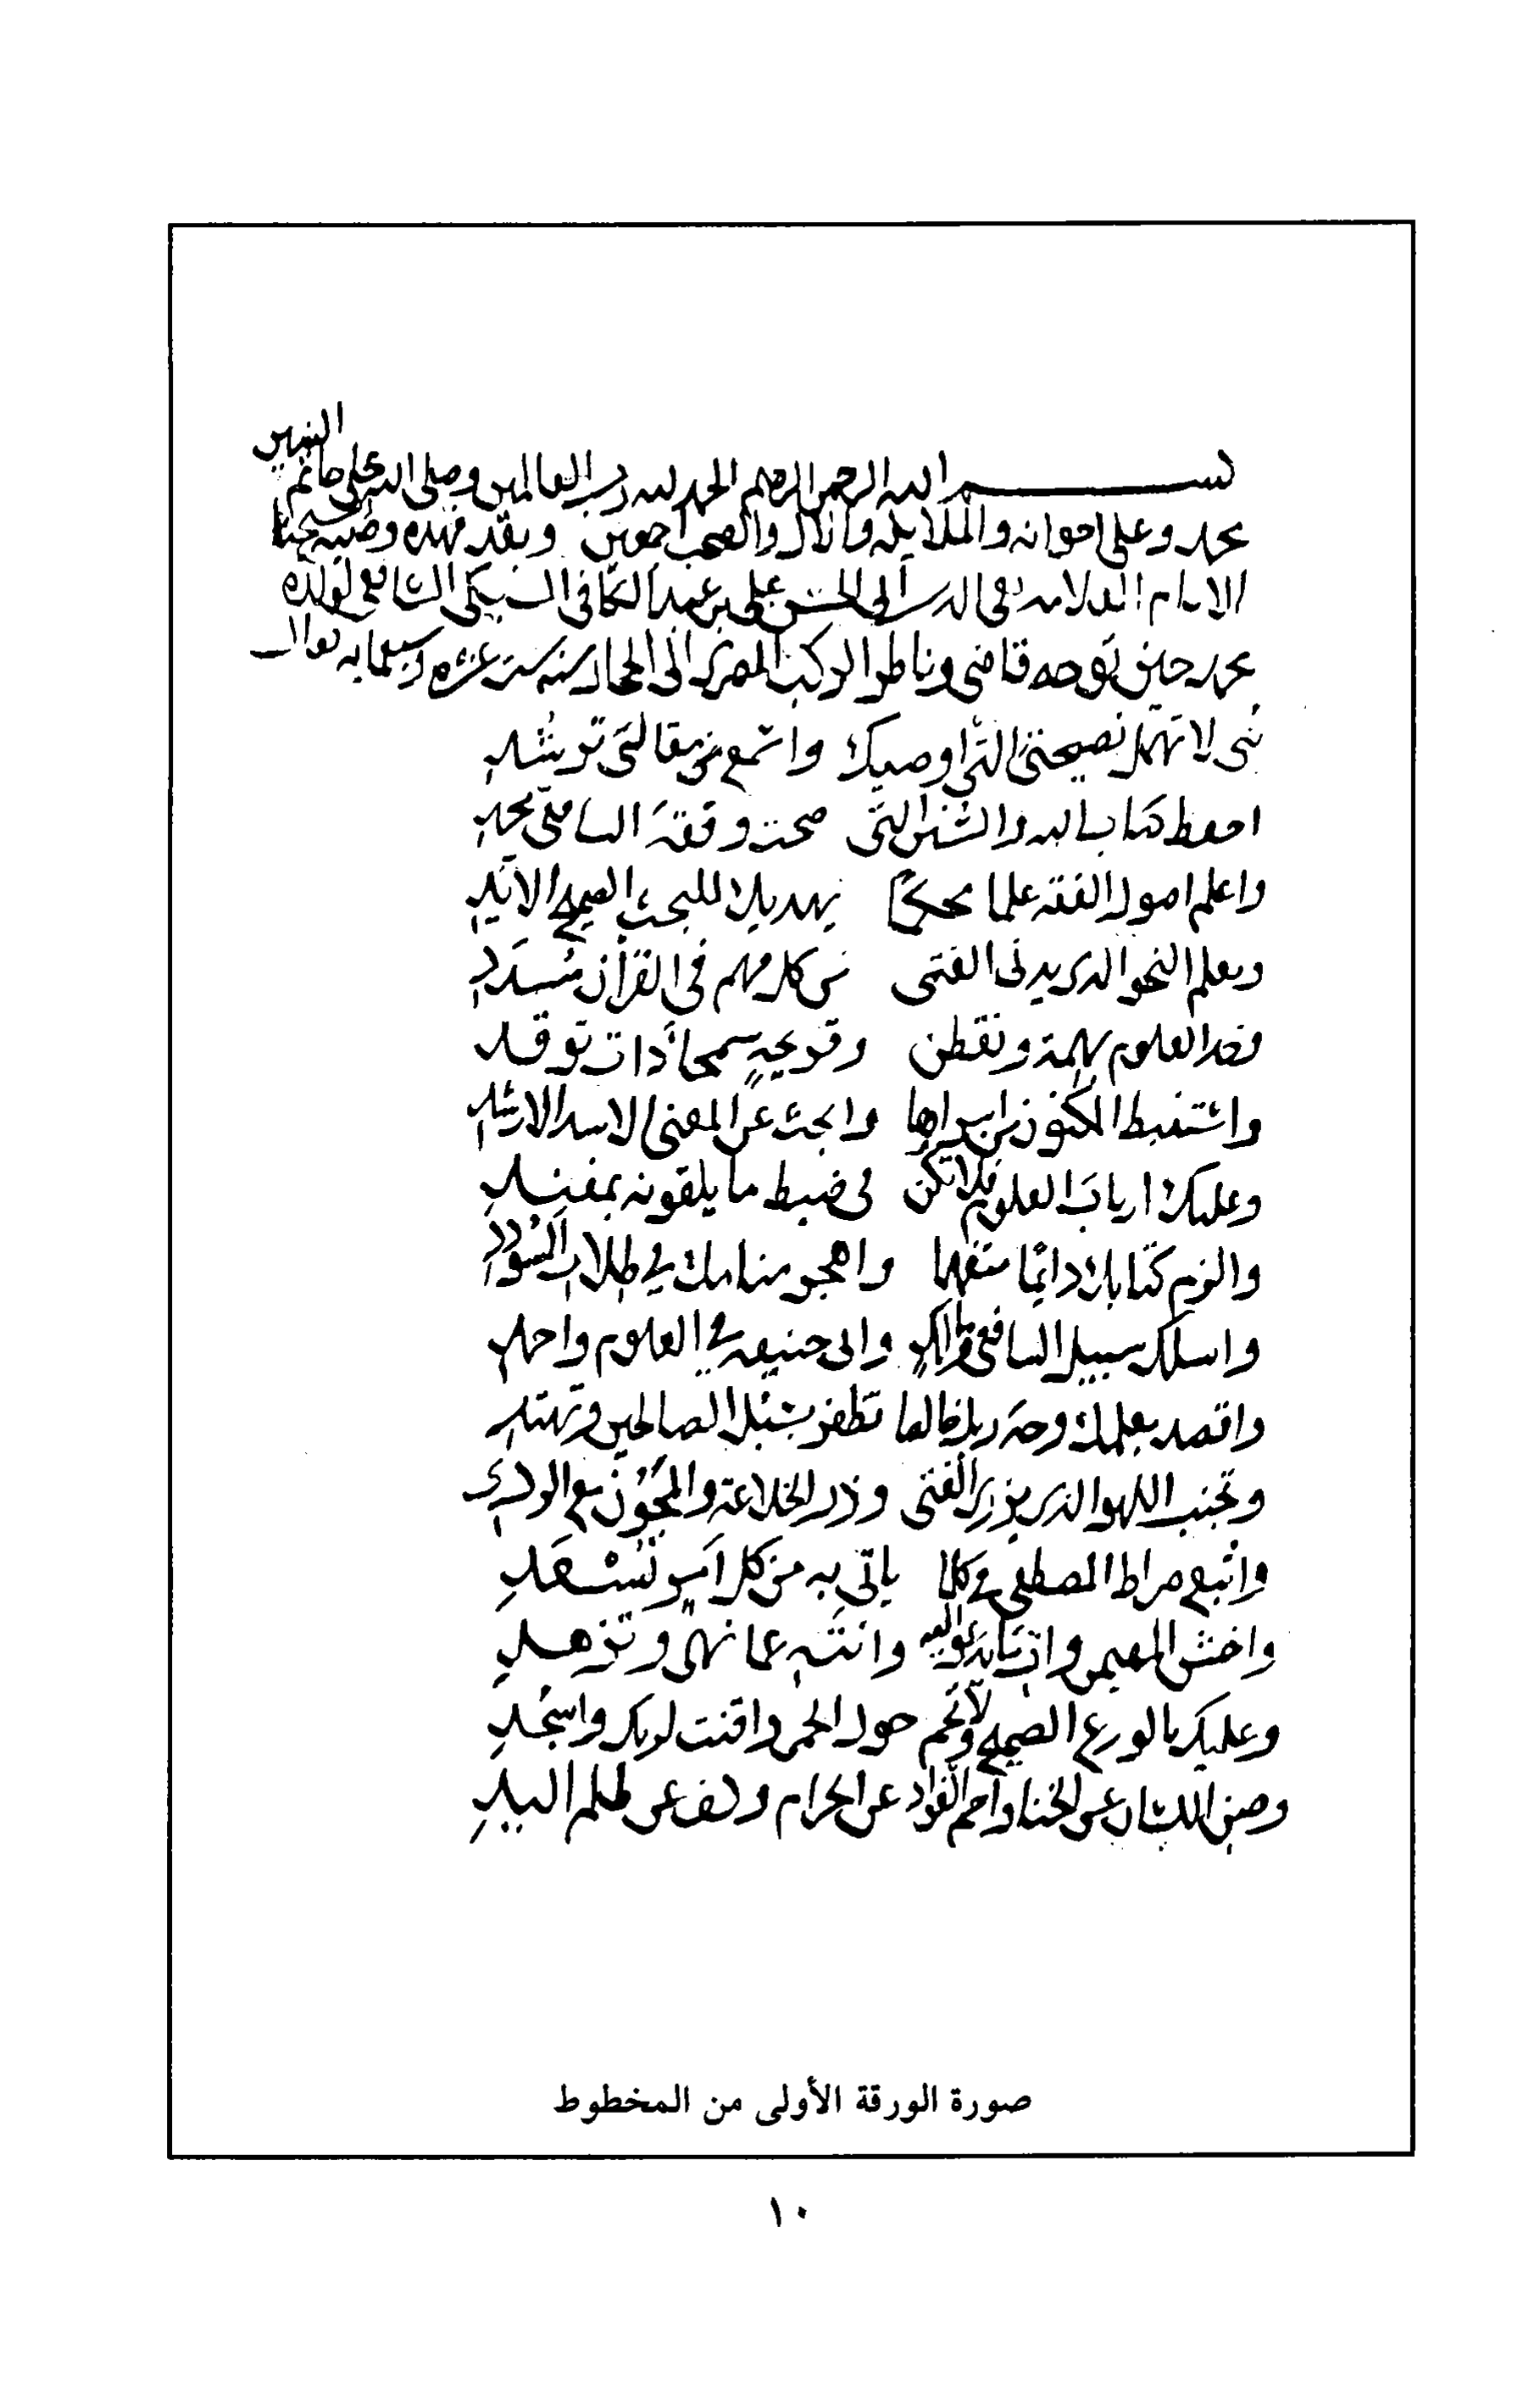 بسم الله الرحمن الرحيم الحمد لله رب العالمين وصلى الله على خاتم النبيين
محمد وعلى اخوانه والملايكه والال والصحب اجمعين وبعد فهذه وصية شيخنا
الامام العلامه تقي الدين أبي الحسن علي بن عبد الكافي السبكي الشافعي لولده
محمد حين توجه قاضي وناظر الركب المصري الى الحجاز سنه ست عشره وسبعمايه فقال
بني لا تهمل نصيحتي التي اوصيك واسمع من مقالتي ترشد
احفظ كتاب الله والسنن التي صحت وفقه الشافعي محمد
واعلم اصول الفقه علما محكماً يهديك للبحث الصحيح الايد
وتعلم النحو الذي يدني الفتى من كل فهم في القرآن مسدد
وخذ العلوم بهمة وتفطن وقريحةٍ سمحاً ذات توقد
واستنبط المكنون من اسرارها وابحث عن المعنى الاسد الارشد
وعليك ارباب العلوم فلا تكن في ضبط ما يلقونه بمفند
والزم كتابك دائما متفهما واهجر منامك في طلاب السؤدد
واسلك سبيل الشافعي ومالك وابي حنيفه في العلوم واحمد
واقصد بعلمك وجه ربك خالصا تظفر بسبل الصالحين وتهتد
وتجنب اللهو الذي يزري الفتى وذر الخلاعة والمجون مع الردي
واتبع صراط المصطفى في كلما ياتي به من كل امر تسعد
واخش المهيمن وات ما يدعو اليه وانته عما نهى وتزهد
وعليك بالورع الصحيح ولا تحم حول الحمى واقنت لربك واسجد
وصن اللسان عن الخنا واحم الفؤاد عن الحرام وكف عن ظلم اليد
صورة الورقة الأولى من المخطوط
١٠